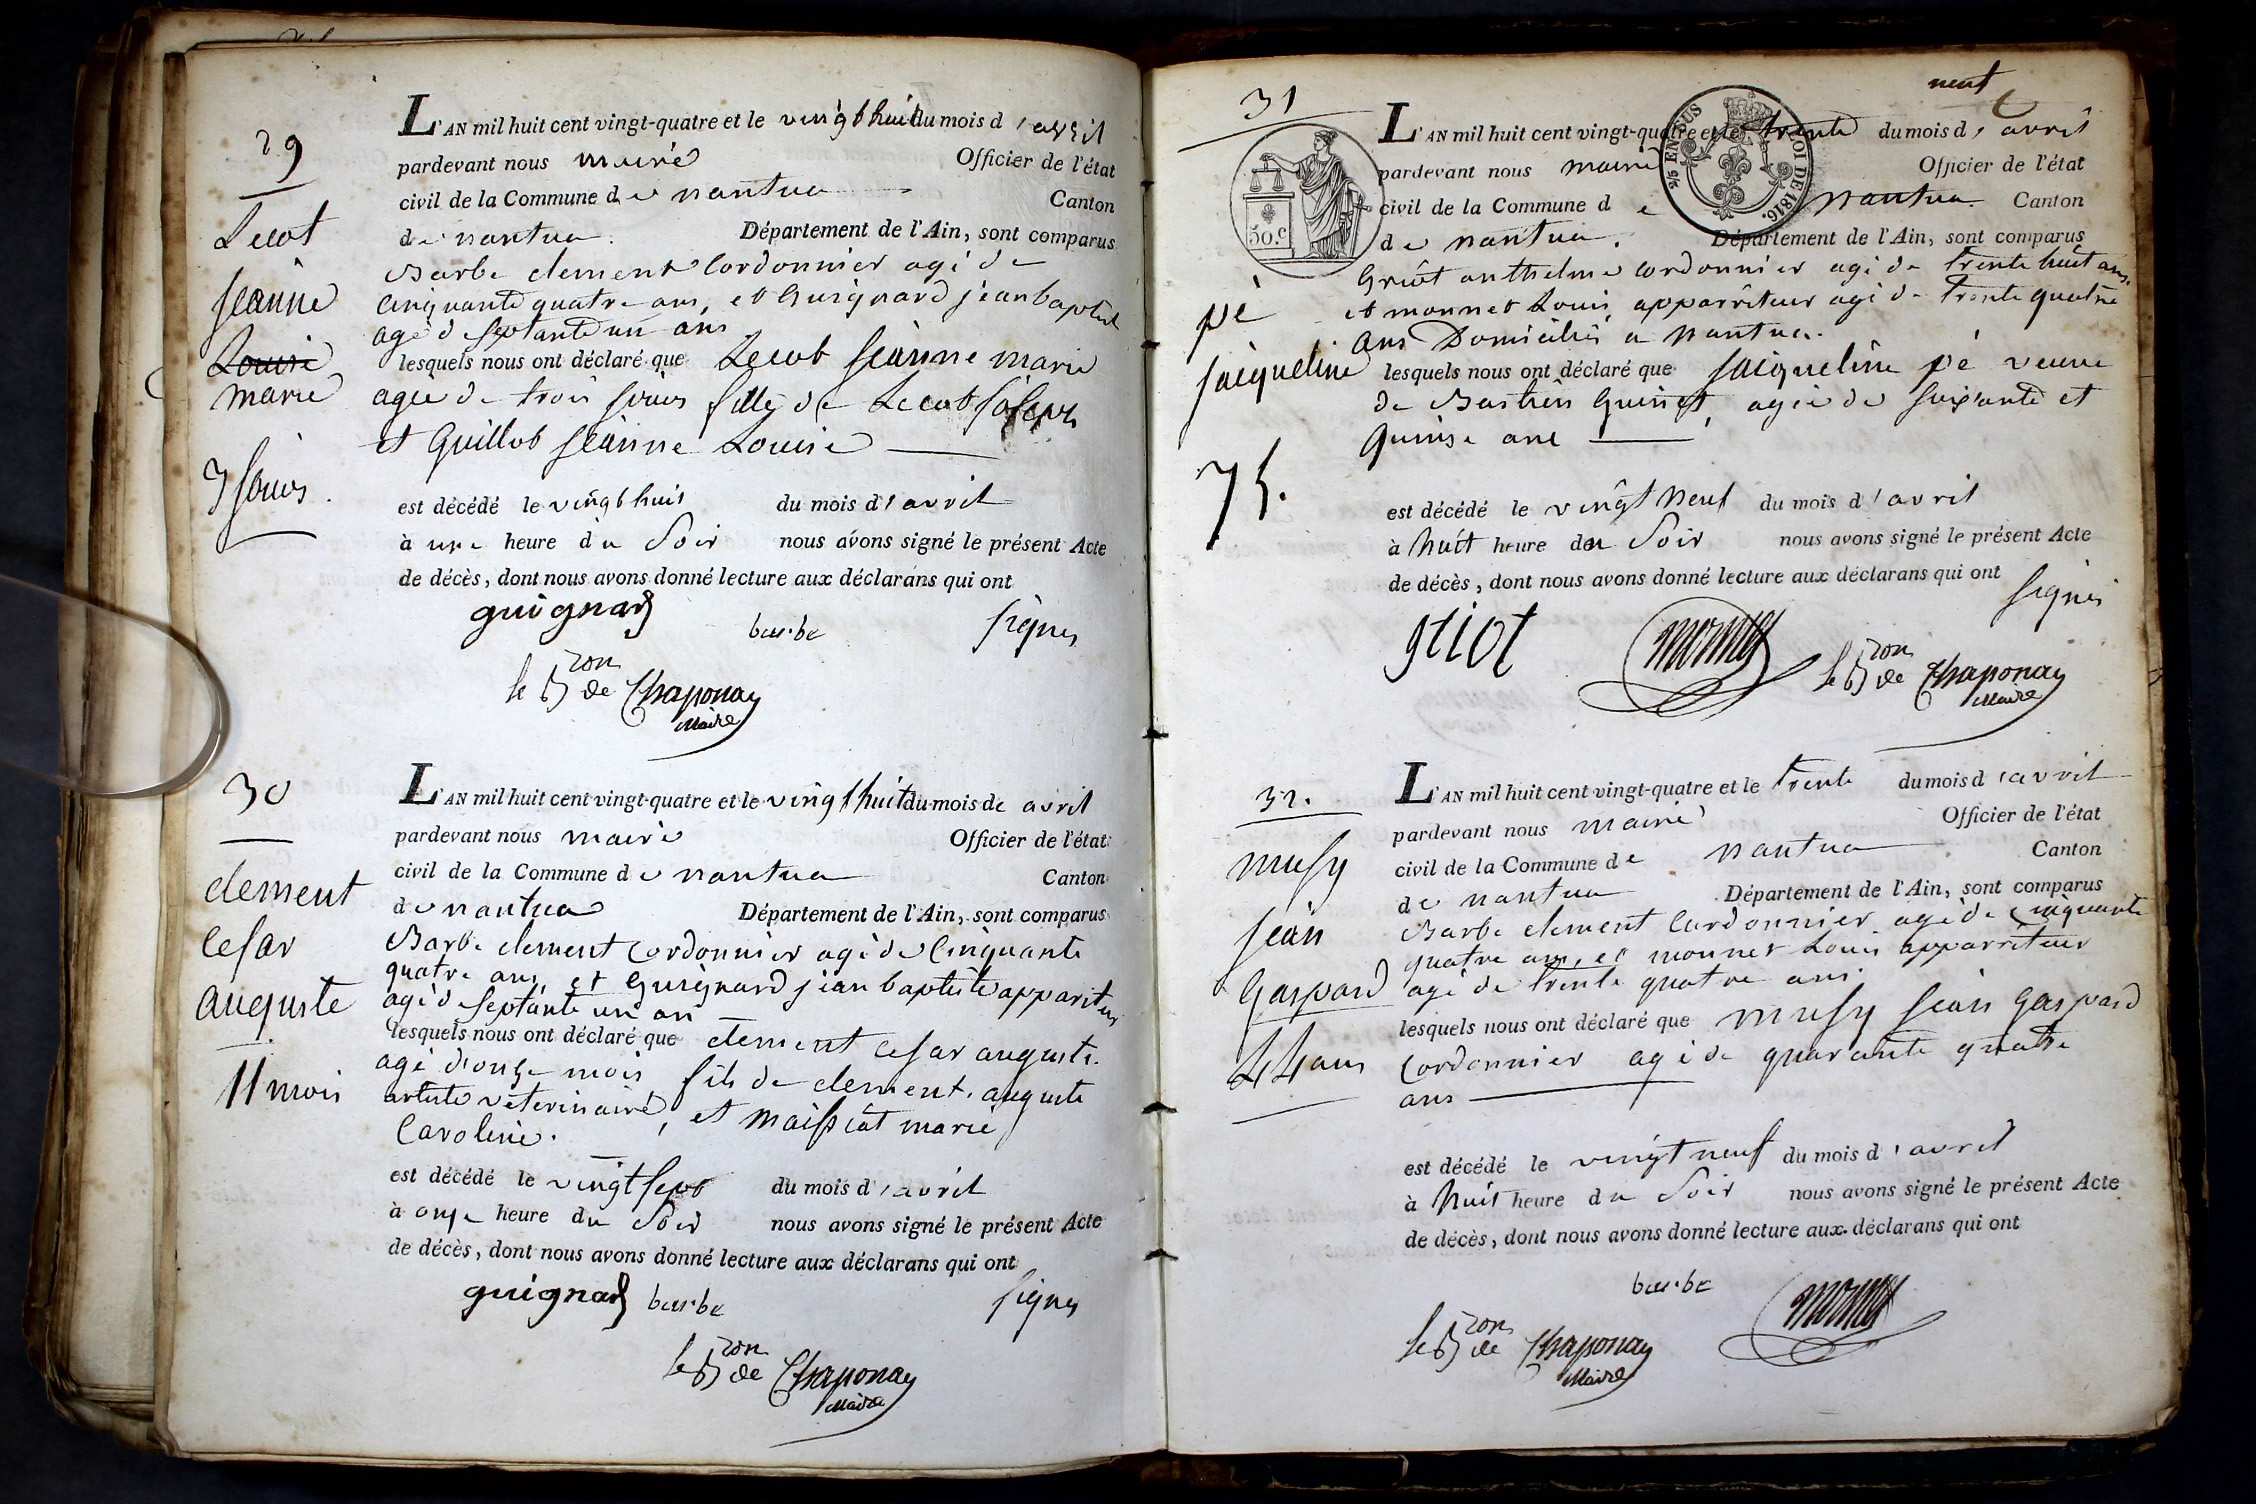 29
Lecot
Jeanne
Louise
marie
3 jours.
L'AN mil huit cent vingt-quatre et le vingt huit du mois d'avril
pardevant nous maire Officier de l'état
civil de la Commune de nantua Canton
de nantua. Département de l'Ain, sont comparus
Barbe clement Cordonnier agé de
Cinquante quatre ans, et Guignard jean baptiste
agé de septante un ans
lesquels nous ont déclaré que Lecot Jeanne marie
agée de trois jours fille de Lecot joseph
et Guillot Jeanne Louise
est décédé le vingt huit du mois d'avril
à une heure du Soir nous avons signé le présent Acte
de décès, dont nous avons donné lecture aux déclarans qui ont
signes
guignard barbe
le Bon de Chaponay
Maire
30
clement
Cesar
auguste
11 mois
L'AN mil huit cent vingt-quatre et le vingt huit du mois de avril
pardevant nous maire Officier de l'état
civil de la Commune de nantua Canton
de nantua Département de l'Ain, sont comparus
Barbe clement Cordonnier agé de Cinquante
quatre ans, et Guignard jean baptiste apparit
agé de septante un an
lesquels nous ont déclaré que clement Cesar auguste.
agé d'onze mois fils de clement. auguste
artiste veterinaire, et Maissiat marie
Caroline.
est décédé le vingt sept du mois d'avril
à onze heure du Soir nous avons signé le présent Acte
de décès, dont nous avons donné lecture aux déclarans qui ont
guignard barbe signes
le Bon de Chaponay
Maire
neuf
31
pé
jacqueline
75.
50.c
2/5 EN SUS
LOI DE 1816.
L'AN mil huit cent vingt-quatre et le trente du mois d'avril
pardevant nous maire Officier de l'état
civil de la Commune de nantua Canton
de nantua. Département de l'Ain, sont comparus
Griot anthelme cordonnier agé de trente huit ans.
et monnet Louis apparriteur agé de trente quatre
ans Domiciliés a nantua.
lesquels nous ont déclaré que Jacqueline pé veuve
de Bastien Guinet, agée de soixante et
quinse ans
est décédé le vingt neuf du mois d'avril
à huit heure du Soir nous avons signé le présent Acte
de décès, dont nous avons donné lecture aux déclarans qui ont
signés
griot monnet
le Bon de Chaponay
Maire
32.
musy
jean
Gaspard
44 ans
L'AN mil huit cent vingt-quatre et le trente du mois d'avril
pardevant nous maire Officier de l'état
civil de la Commune de nantua Canton
de nantua Département de l'Ain, sont comparus
Barbe clement Cordonnier agé de Cinquante
quatre ans, et monnet Louis apparriteur
agé de trente quatre ans.
lesquels nous ont déclaré que musy jean Gaspard
Cordonnier agé de quarante quatre
ans
est décédé le vingt neuf du mois d'avril
à huit heure du Soir nous avons signé le présent Acte
de décès, dont nous avons donné lecture aux déclarans qui ont
barbe monnet
le Bon de Chaponay
Maire